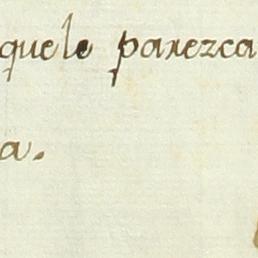 quele parezca
a.